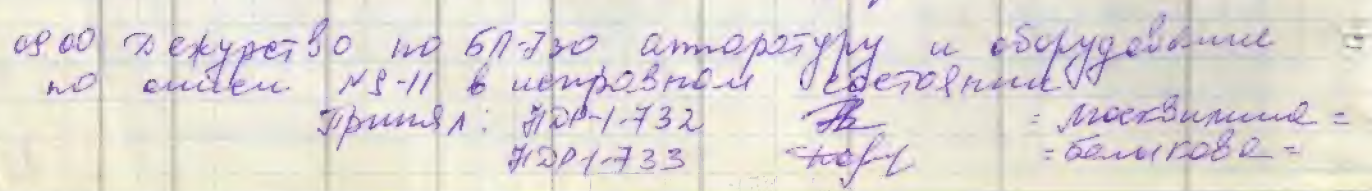 0900 Дежурство по БП-730 аппаратуру и оборудование
по описи №9-11 в исправном состоянии
Принял: ПДР-1-732 = Москвитина =
ПДР-1-733 = Балыкова =